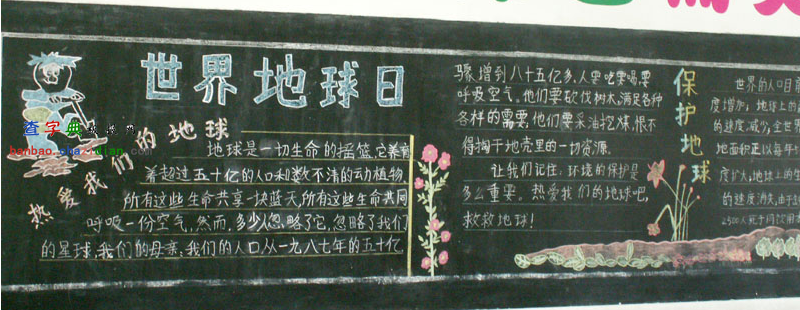 世界地球日
热爱我们的地球
地球是一切生命的摇篮,它养育
着超过五十亿的人口和数不清的动植物,
所有这些生命共享一块蓝天,所有这些生命共同
呼吸一份空气,然而,多少人忽略了它,忽略了我们
的星球,我们的母亲,我们的人口从一九八七年的五十亿
骤增到八十五亿多,人要吃要喝,要
呼吸空气。他们要砍伐树木,满足各种
各样的需要,他们要采油挖煤,恨不
得掏干地壳里的一切资源。
让我们记住,环境的保护是
多么重要。热爱我们的地球吧,
救救地球!
保护地球
世界的人口目前
度增加;地球上的
的速度减少;全世界
地面积正以每年
度扩大;地球上的生
的速度消失,由于
2500人死于
查字典